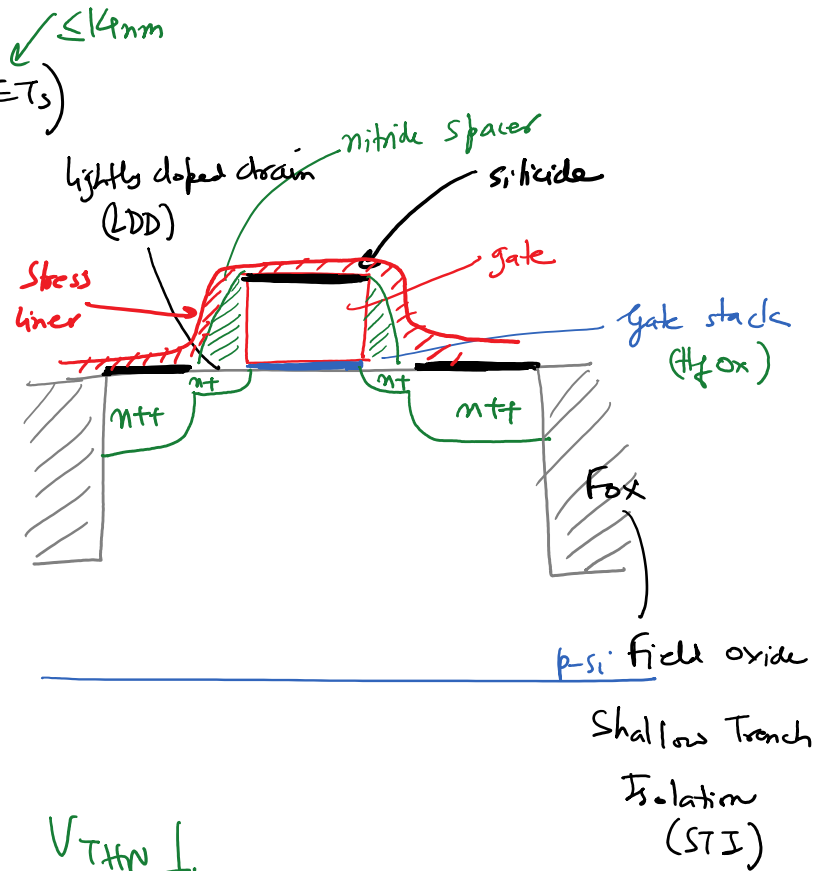 ≤14nm
=Ts)
nitride spacer
lightly doped drain
(LDD)
silicide
Stress
liner
gate
Gate stack
(HfOx)
n+
n+
n++
n++
Fox
p-si
Field oxide
Shallow Trench
Isolation
(STI)
VTHN